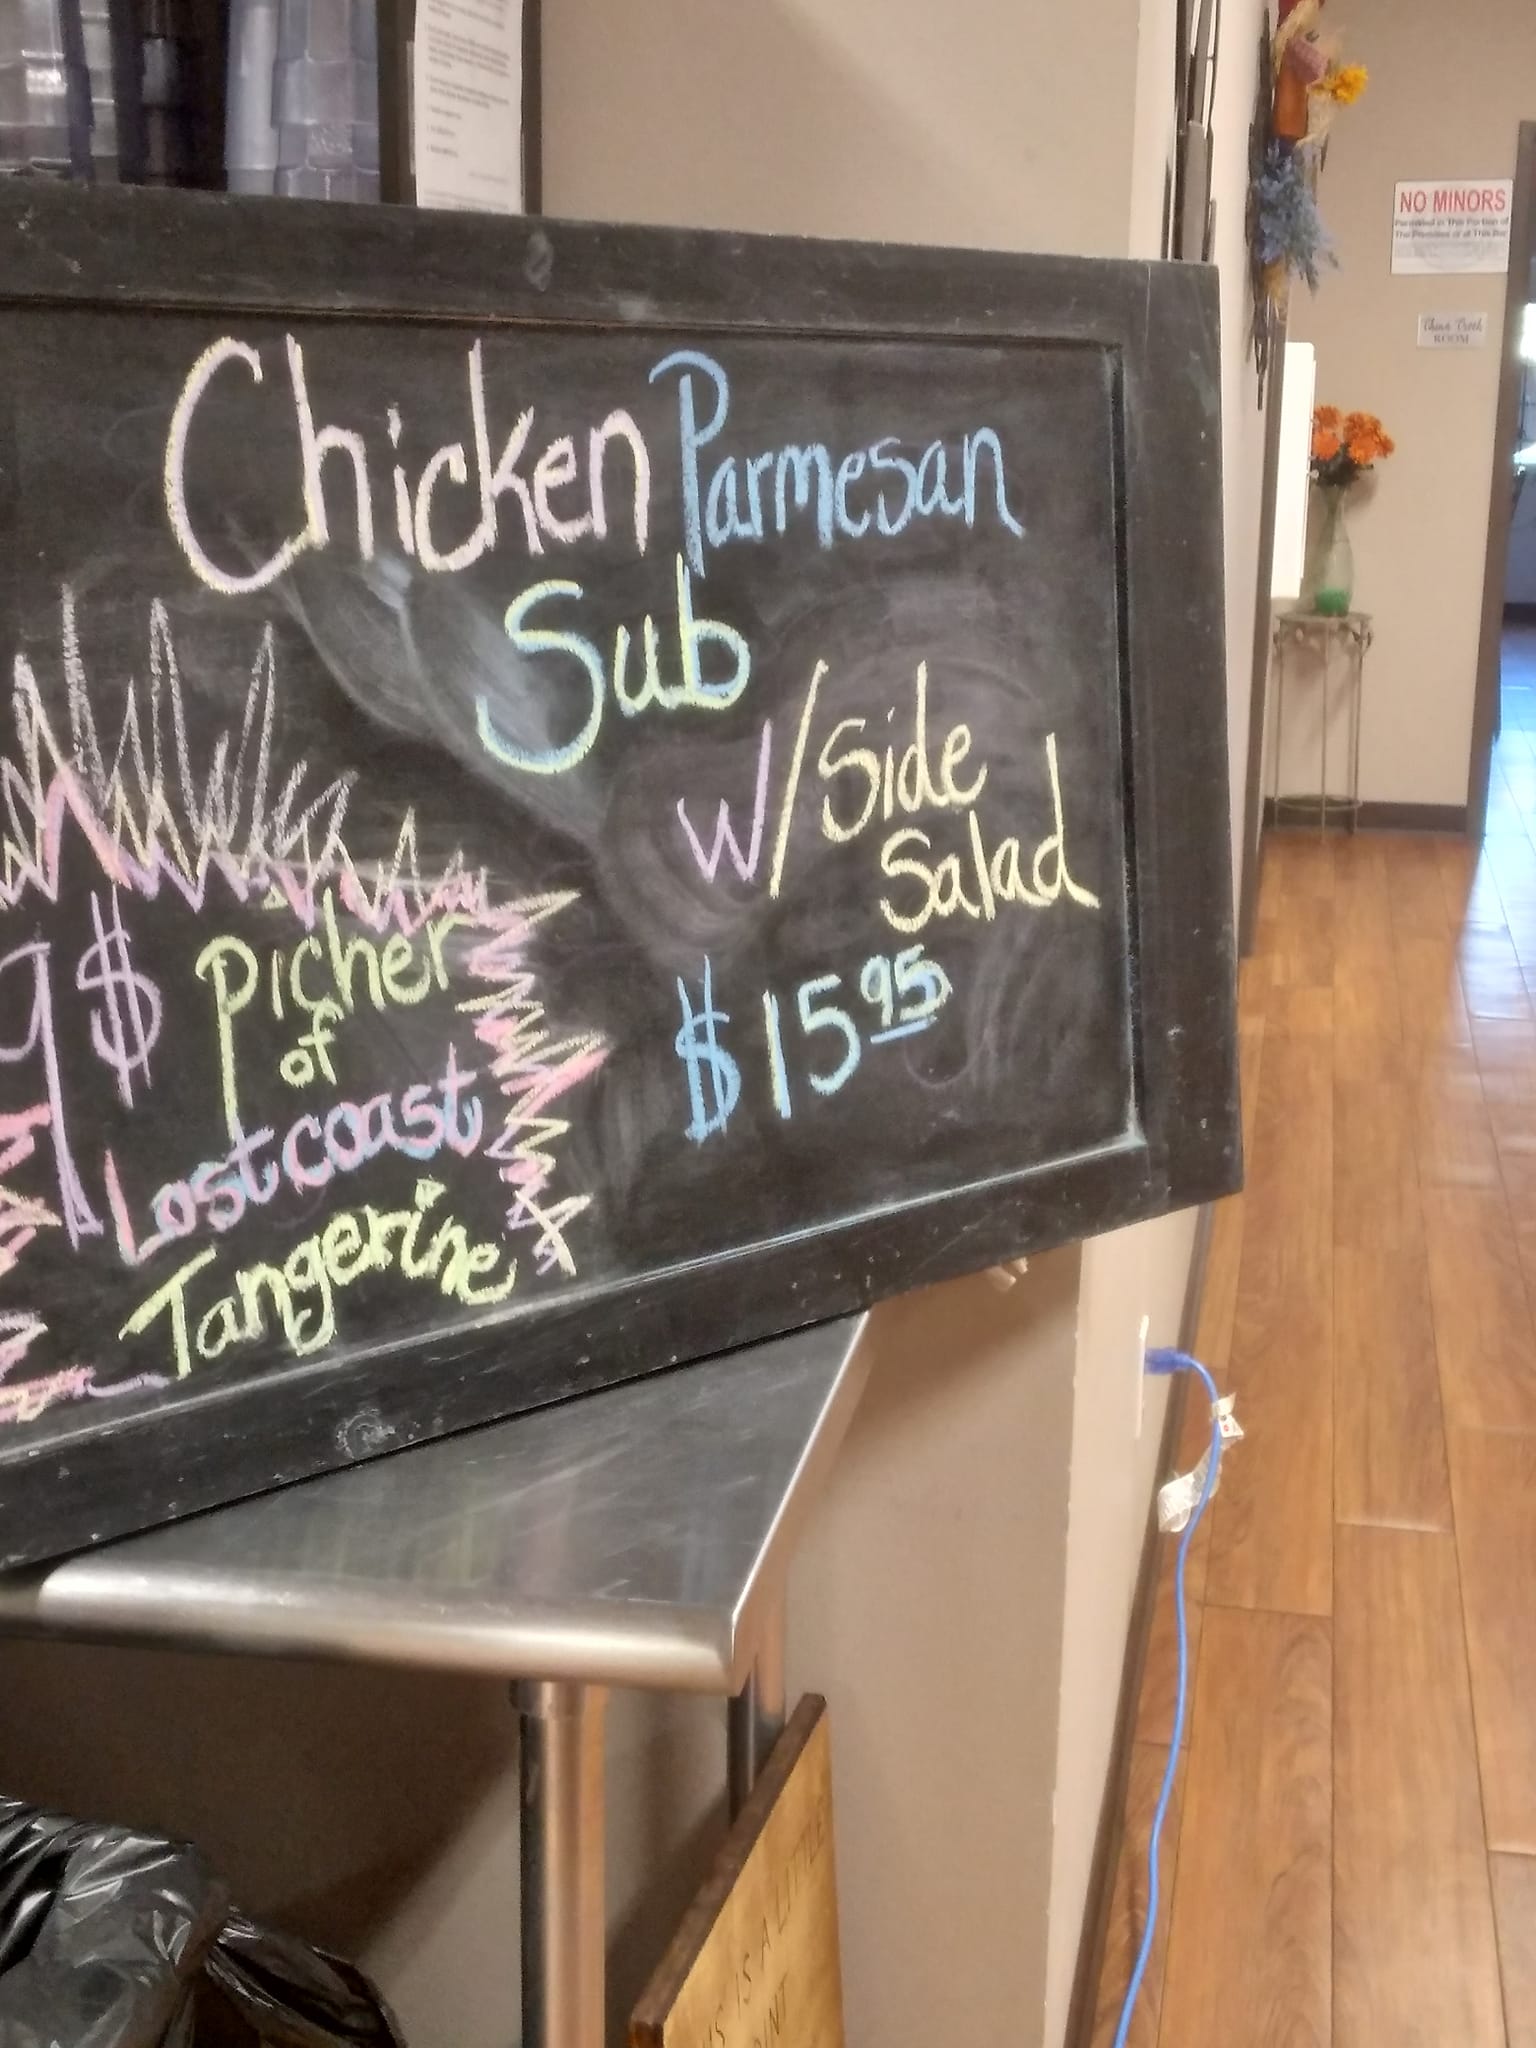 Chicken Parmesan
Sub
w/Side
Salad
$15.95
9$ Picher
of
Lostcoast
Tangerine
NO MINORS
Permitted in This Portion of
The Premises of This Bar
ROOM
IS A LITTLE